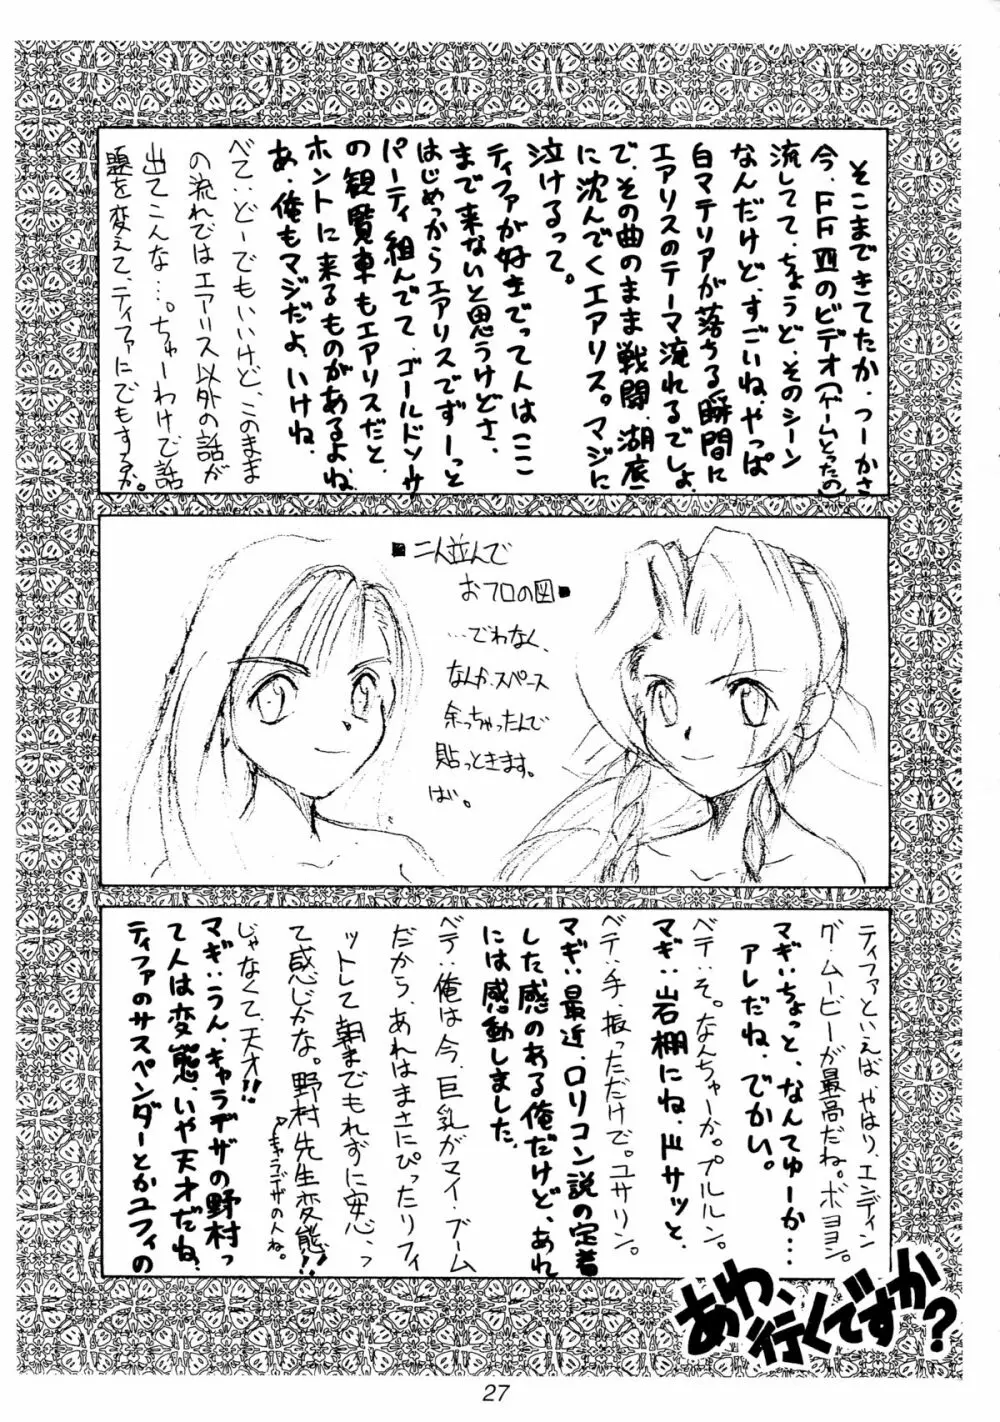 そこまできてたか。つーかさ
今、FFⅦのビデオ(ゲームとったの)
流してて、ちょうど、そのシーン
なんだけど、すごいね。やっぱ
白マテリアが落ちる瞬間に
エアリスのテーマ流れるでしょ
で、その曲のまま戦闘、湖底
に沈んでくエアリス。マジに
泣けるって。
ティファが好きでって人はここ
まで来ないと思うけどさ、
はじめっからエアリスでずーっと
パーティ組んでて、ゴールドソーサ
の観覧車もエアリスだと、
ホントに来るものがあるよね
あ、俺もマジだよ、いけね。
べて:どーでもいいけど、このまま
の流れではエアリス以外の話が
出てこんな…。ちゅーわけで話
題を変えて、ティファにでもするか。
■二人並んで
おフロの図■
…でわなく、
なんか、スペース
余っちゃったんで
貼っときます。
ば。
ティファといえば、やはり、エンディン
グ・ムービーが最高だね。ボヨヨン。
マギ:ちょっと、なんてゆーか…
アレだね、でかい。
ベテ:そ。なんちゃーか。プルルン。
マギ:岩棚にね、ドサッと
ベテ:手、振っただけで。ユサリン。
マギ:最近、ロリコン説の定着
した感のある俺だけど、あれ
には感動しました。
ベテ:俺は今、巨乳がマイ・ブーム
だから、あれはまさにぴったりフィ
ットして朝までもれずに安心、っ
て感じかな。野村先生変態!!
↑キャラデザの人ね。
じゃなくて、天才!!
マギ:うん、キャラデザの野村っ
て人は変態、いや天才だね、
ティファのサスペンダーとかユフィの
あわ、行くですか?
27